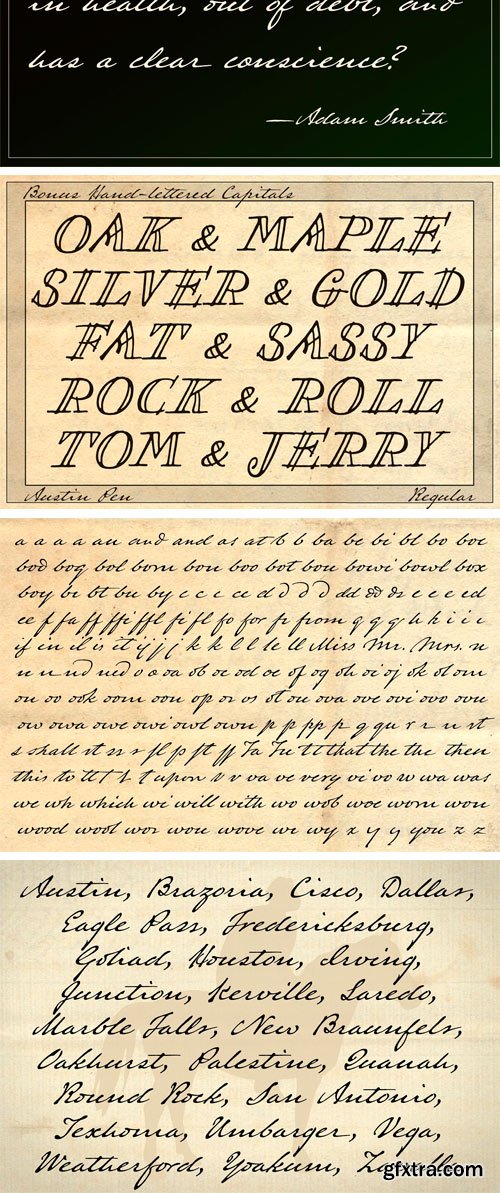 in health, out of debt, and
has a clear conscience?
—Adam Smith
Bonus Hand-lettered Capitals
OAK & MAPLE
SILVER & GOLD
FAT & SASSY
ROCK & ROLL
TOM & JERRY
Austin Pen
Regular
a a a a au and and as at b b ba be bi bl bo boc
bod bog bol born bou boo bot bou bowi bowl box
boy br bt bu by c c c cd d d d d dd dd ds e e e ed
ee f fa ff ffi ffl fi fl fo for fr from g g g h h i i i
if in il is it ij j j k k l l le ll Miss Mr. Mrs. n
n n nd ned o o oa ob oc od oe of og oh oi oj ok ol om
on oo ook oom oon op or os ot ou ova ove ovi ovo ovu
ow owa owe owi owl own p p pp p q qu r r n st
s shall st ss s fl p ft ff Ta Tu tt that the the then
this to ttt t t t upon v v va ve very vi vo w wa was
we wh which wi will with wo wob woe worn wou
wood wool wor wou wove wi wy x y y you z z
Austin, Brazoria, Cisco, Dallas,
Eagle Pass, Fredericksburg,
Goliad, Houston, Irving,
Junction, Kerville, Laredo,
Marble Falls, New Braunfels,
Oakhurst, Palestine, Quanah,
Round Rock, San Antonio,
Texhoma, Umbarger, Vega,
Weatherford, Yoakum,
gfxtra.com